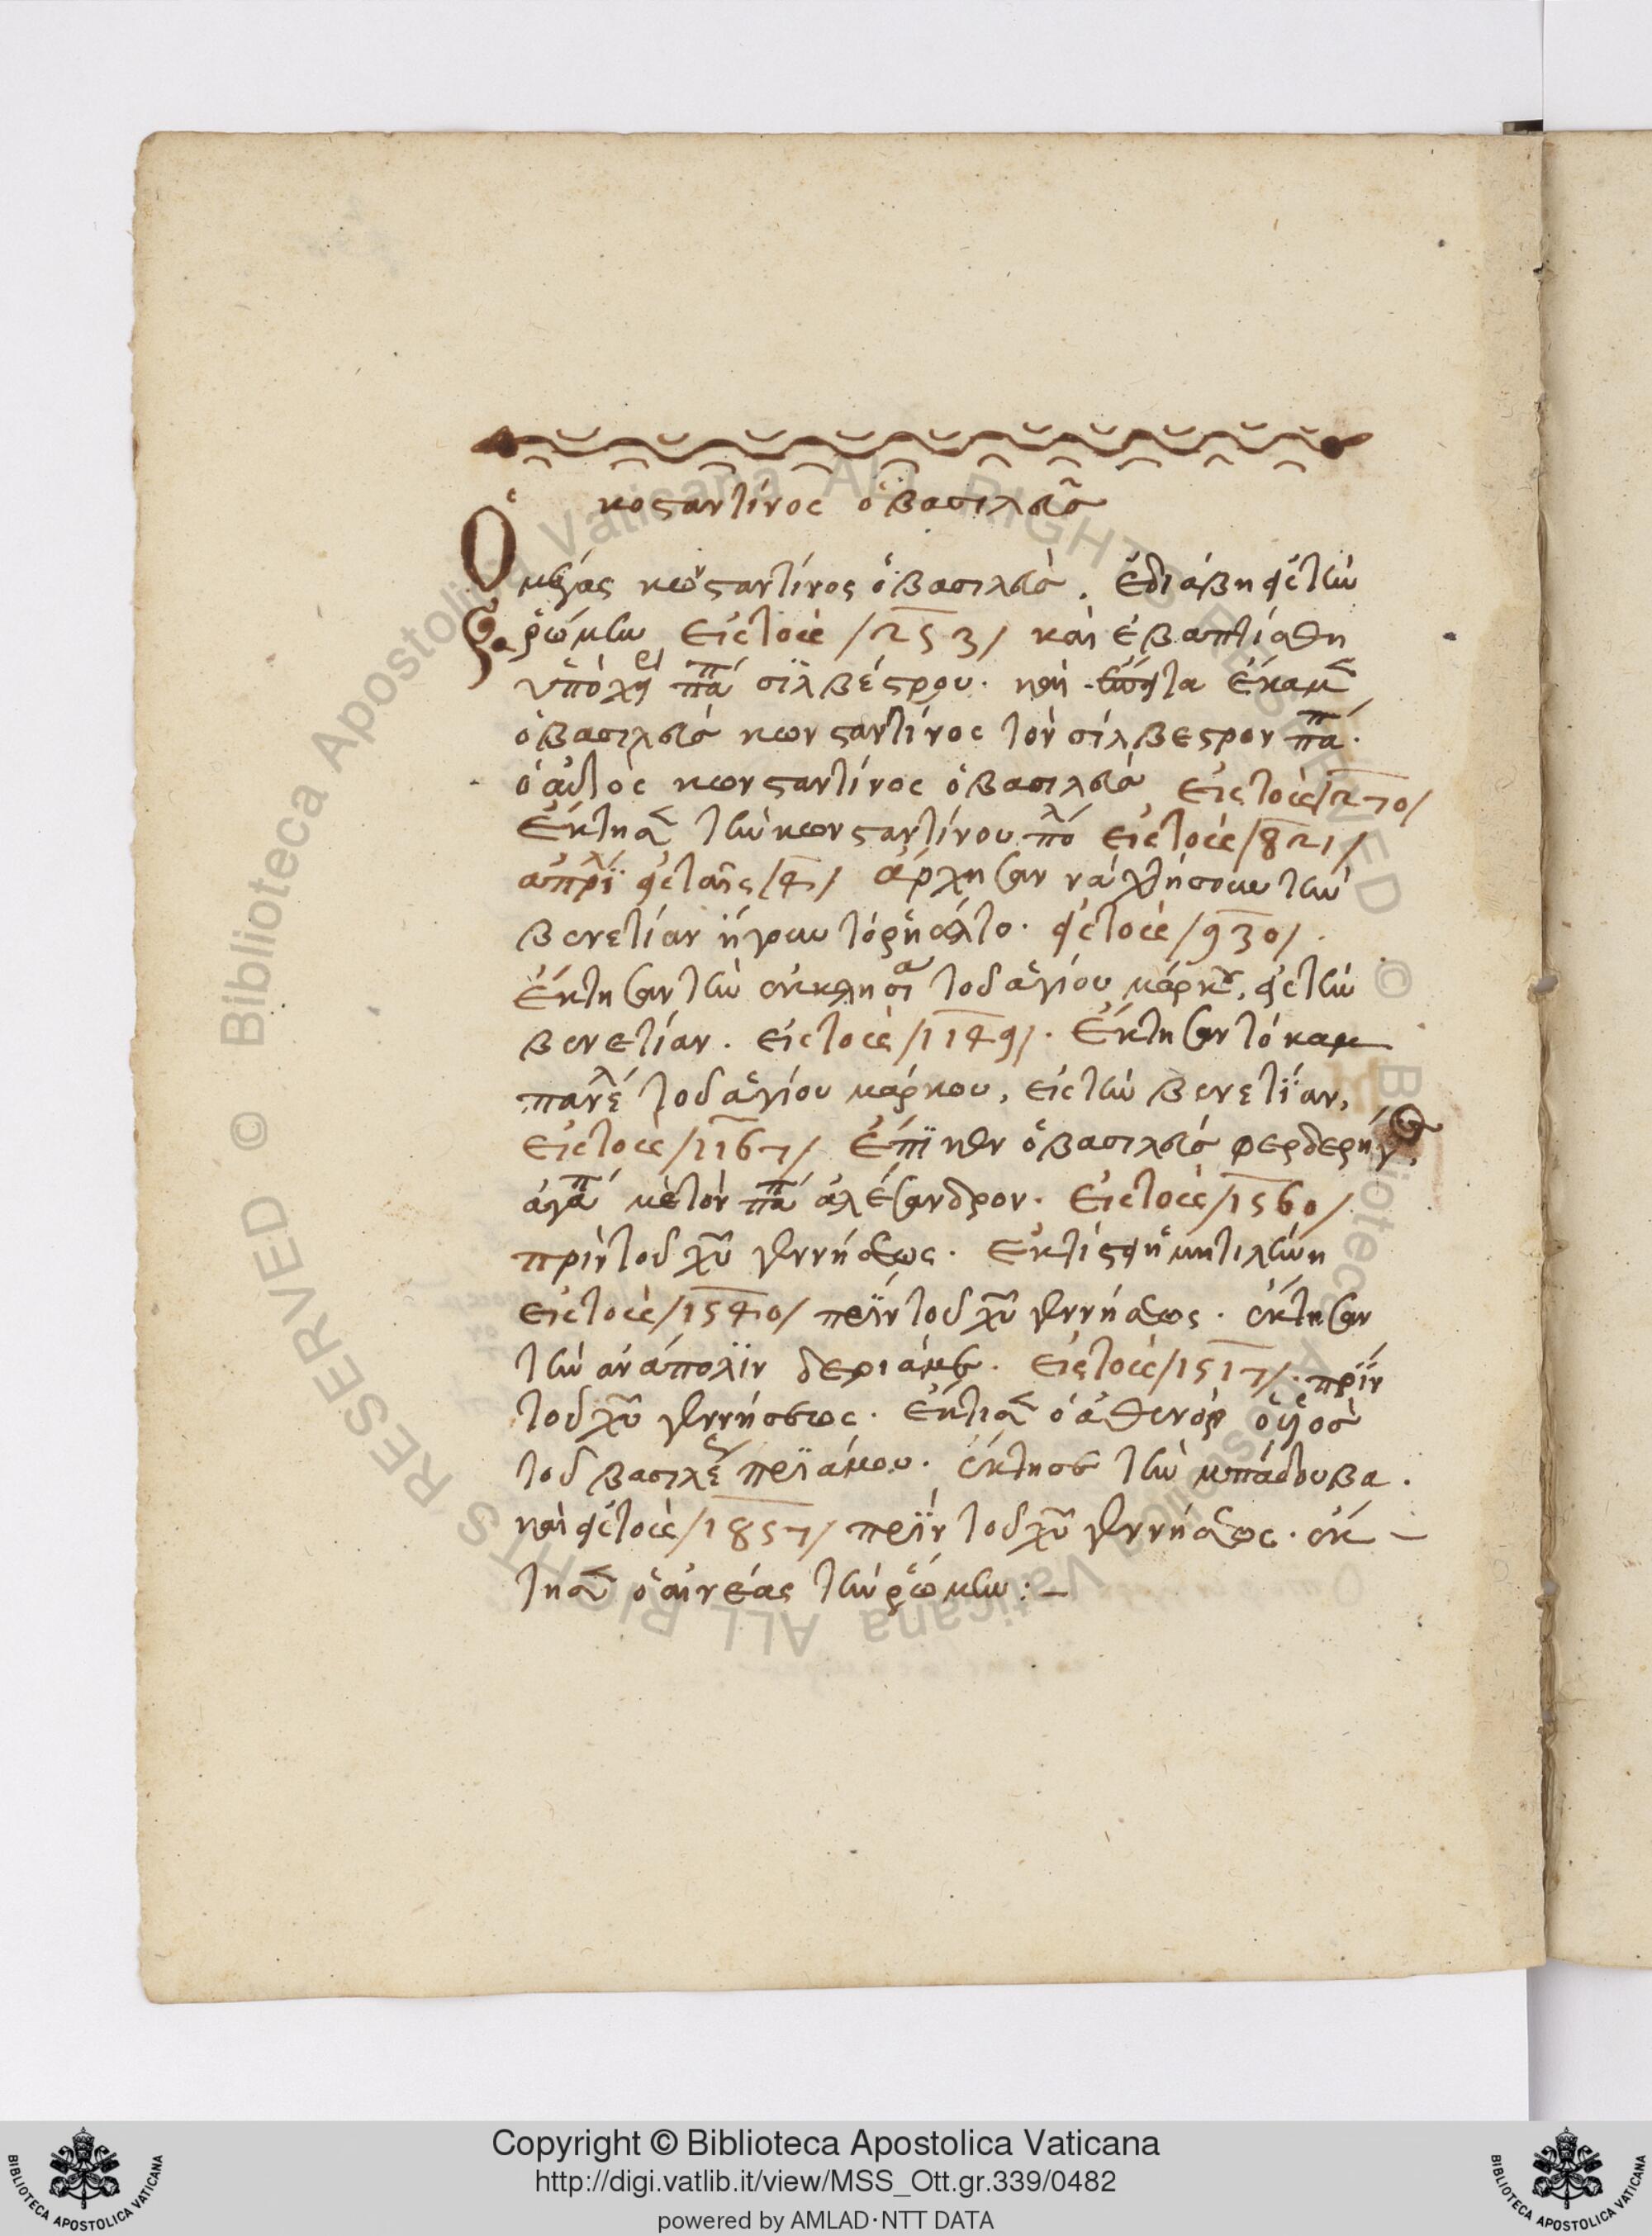 κοςαντίνος ὁ βασιλεῦσ
Ὁ μέγας κωνςαντίνος ὁ βασιλεὺσ. ἐδιάβη εἰς τὴν
ῥώμην εἰς τοὺς /253/ καὶ ἐβαπτίσθη
ὑπὸ χει παπ σϊλβέςρου. καὶ ἔκαμε
ὁ βασιλεύσ κωνςαντίνος τὸν σίλβεςρον παπ.
ὁ αὐτὸς κωνςαντίνος ὁ βασιλεύσ εἰς τοὺς /270/
ἔκτησε τὴν κωνςαντίνου πολ εἰς τοὺς /821/
ἀπριλ εἰς ταῖς /4/ ἄρχησαν νὰ χτήσουν τὴν
βενετίαν ἤγουν τὸ ρηάλτο. εἰς τοὺς /930/.
ἔκτησαν τὴν ἐκκλησία τοῦ ἁγίου μάρκου, εἰς τὴν
βενετίαν. εἰς τοὺς /1149/. ἔκτησαν τὸ καμ
πανελ τοῦ ἁγίου μάρκου, εἰς τὴν βενετΐαν,
εἰς τοὺς /1167/ ἔπϊησεν ὁ βασιλεύσ φερδερήγο,
ἀγαπ μὲ τὸν παπ ἀλέξανδρον. εἰς τοὺς /1560/
πρὶν τοῦ χυ γεννήσεως. ἐκτίςη ἡ μητιλήνη
εἰς τοὺς /1540/ πρϊν τοῦ χυ γεννήσεως. ἔκτησαν
τὴν ἀνάπολϊν δεριάμε. εἰς τοὺς /1517/. πρΐν
τοῦ χυ γεννήσεως. ἔκτισε ὁ ἀθενόρ ὁ υἱὸσ
τοῦ βασιλέ πρϊάμου. ἔκτησε τὴν μπάδουβα.
καὶ εἰς τοὺς /1857/ πρϊν τοῦ χυ γεννήσεως. ἔκ -
τησε ὁ αἰνέας τὴν ῥώμην :-
Copyright © Biblioteca Apostolica Vaticana
http://digi.vatlib.it/view/MSS_Ott.gr.339/0482
powered by AMLAD·NTT DATA
BIBLIOTECA APOSTOLICA VATICANA
BIBLIOTECA APOSTOLICA VATICANA
© Biblioteca Apostolica Vaticana ALL RIGHTS RESERVED © Biblioteca Apostolica Vaticana ALL RIGHTS RESERVED